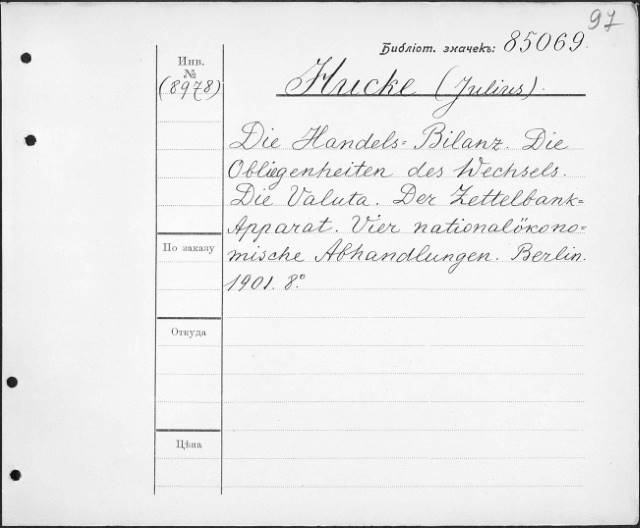 97
Библіот. значекъ: 85069.
Инв.
№
(8978)
Hucke (Julius).
Die Handels= Bilanz. Die
Obliegenheiten des Wechsels.
Die Valuta. Der Zettelbank=
Apparat. Vier nationalökono=
mische Abhandlungen. Berlin.
1901. 8.°
По заказу
Откуда
Цѣна